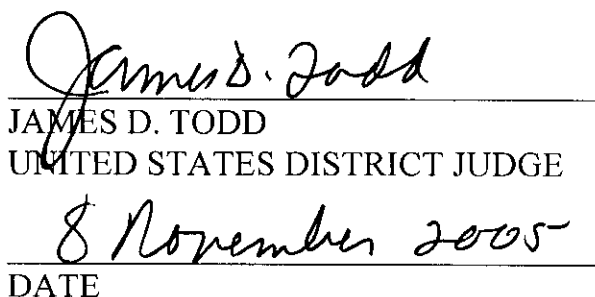 James D. Todd
JAMES D. TODD
UNITED STATES DISTRICT JUDGE
8 November 2005
DATE